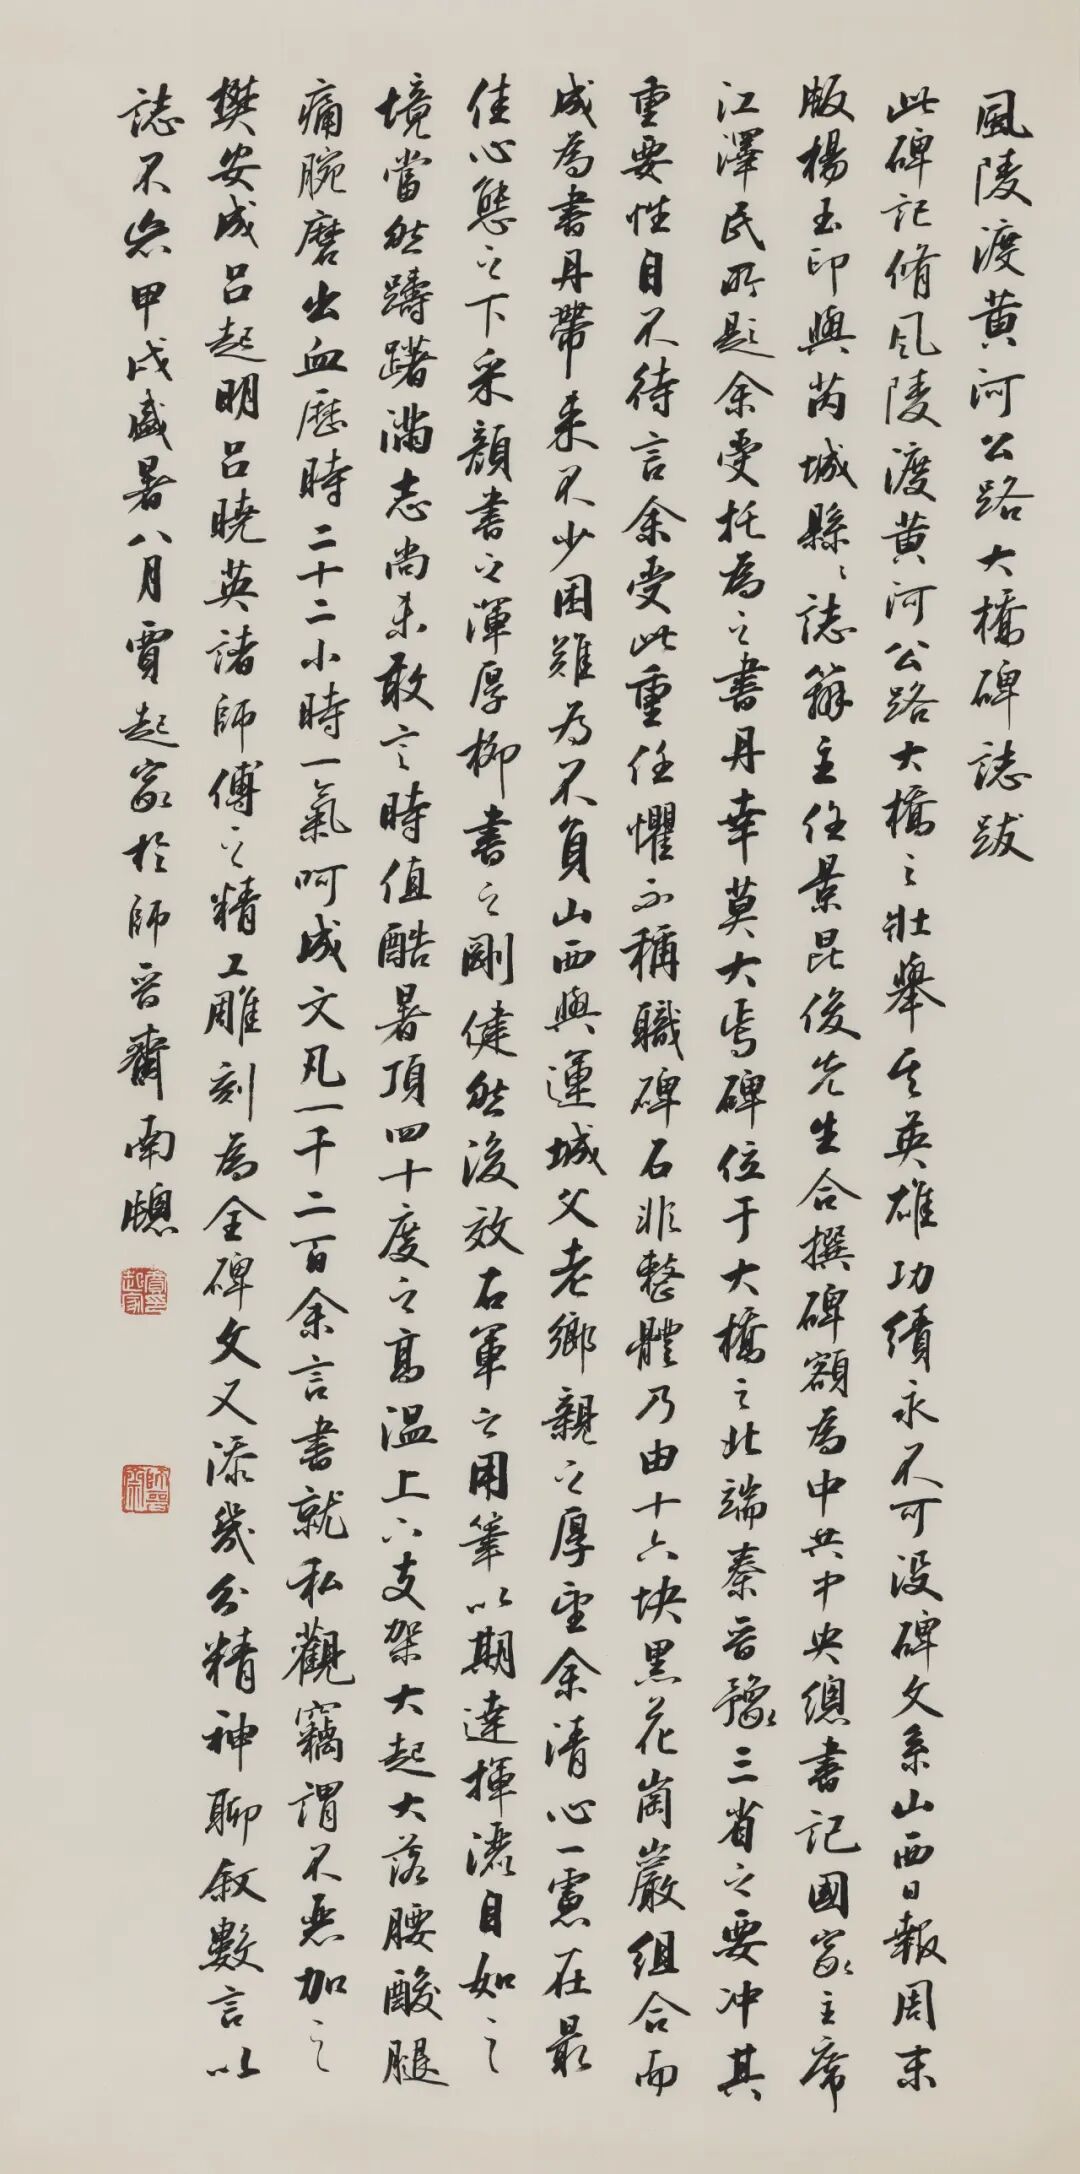 風陵渡黃河公路大橋碑誌跋
此碑記脩風陵渡黃河公路大橋之壯舉其英雄功績永不可没碑文系山西日報周末
版楊玉印與芮城縣〻誌辦主任景昆俊先生合撰碑額為中共中央總書記國家主席
江澤民所題余受托為之書丹幸莫大焉碑位于大橋之北端秦晉豫三省之要冲其
重要性自不待言余受此重任懼不稱職碑石非整體乃由十六块黑花崗巖組合而
成為書丹帶来不少困難為不負山西與運城父老鄉親之厚望余清心一慮在最
佳心態之下采顏書之渾厚柳書之剛健然後效右軍之用筆以期達揮灑自如之
境當然躊躇滿志尚未敢言時值酷暑頂四十度之高温上下支架大起大落腰酸腿
痛腕磨出血歷時二十二小時一氣呵成文凡一千二百余言書就私觀竊謂不惡加之
樊安成吕起明吕曉英諸師傅之精工雕刻為全碑文又添幾分精神聊叙數言以
誌不忘甲戌盛暑八月賈起家於師晉齋南牕
賈起家印
師晉齋